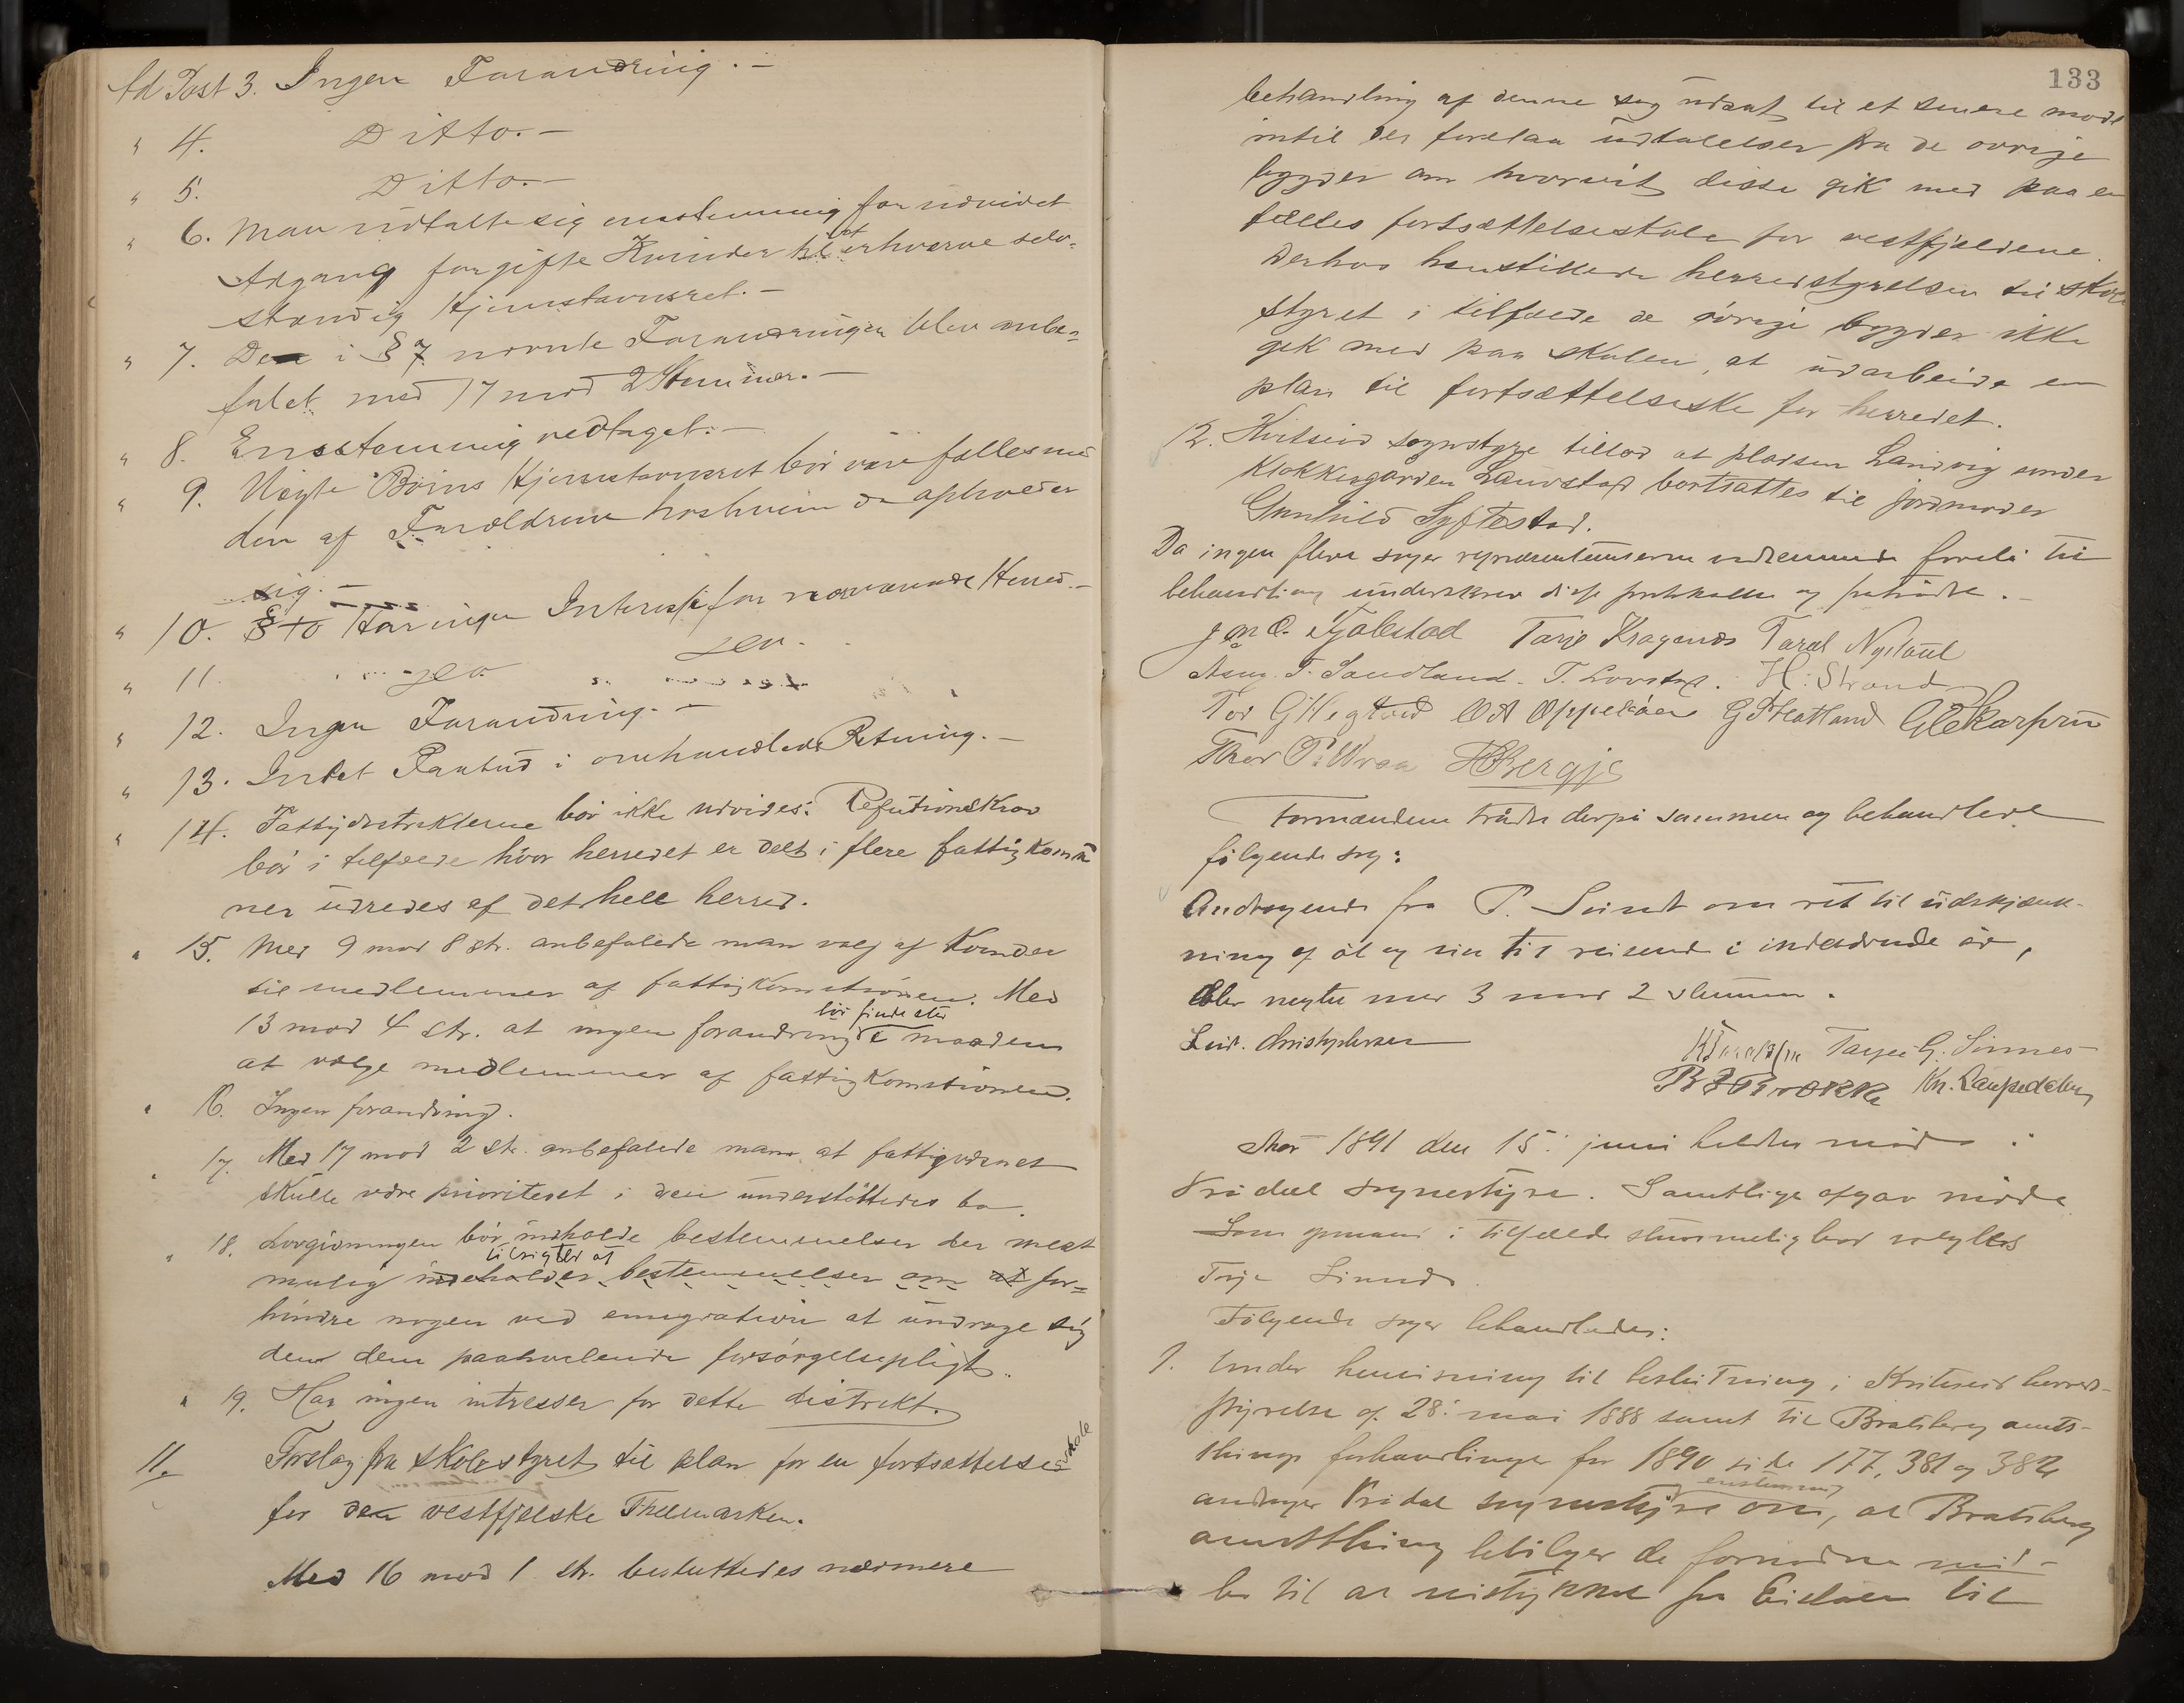 Ad Post 3. Ingen Forandring. –
" 4. Ditto. –
" 5. Ditto. –
" 6. Man udtalte sig enstemmig for udvidet
Adgang for gifte Kvinder til at erhverve selv-
stændig Hjemstavnsret. –
" 7. Den i § 7 nævnte Forandringen blev anbe-
falet med 17 mod 2 Stemmer. –
" 8. Enstemmig vedtaget. –
" 9. Uægte Børns Hjemstavnsret bør være fælles med
den af Forældrene hos hvem de opholder
sig. –
" 10. § 10 Har ingen Interesse for nærværende Herred. –
" 11. " do. " do.
" 12. Ingen Forandring. –
" 13. Intet Paabud i omhandlede Retning. –
" 14. Fattigdistrikterne bør ikke udvides. Refutionskrav
bør i tilfælde hvor herredet er delt i flere fattigkommu
ner udredes af det hele herred.
" 15. Med 9 mod 8 st. anbefalede man valg af Kvinder
til medlemmer af fattigkomisionen. Med
13 mod 4 st. at ingen forandring bør finde sted i maaden
at vælge medlemmer af fattigkomisionen.
" 16. Ingen forandring.
" 17. Med 17 mod 2 st. anbefalede man at fattigvæsenet
skulle være prioriteret i den understøttedes bo.
" 18. Lovgivningen bør indholde bestemmelser der mest
mulig indeholder bestemmelser om at tilsigter at for-
hindre nogen ved emigration at undrage sig
den dem paahvilende forsørgelsepligt.
" 19. Har ingen intresser for dette distrikt.
11. Forslag fra skolestyret til plan for en fortsættelsesskole
for den vestfjelske Thelemarken.
Med 16 mod 1 st. besluttedes nærmere
133
behandling af denne sag udsat til et senere møde
intil der forelaa udtalelser fra de øvrige
bygder om hvorvit disse gik med paa en
fælles fortsættelseskole for vestfjeldene.
Derhos henstillede herredstyrelsen til skole
styret i tilfælde de øvrige bygder ikke
gik med paa skolen, at udarbeide en
plan til fortsættelseske for herredet.
12. Kviteseid sognestyre tillod at pladsen Landvig under
Klokkergarden Laurstad bortsattes til jordmoder
Gunhild Syftestad.
Da ingen flere sager repræsentanterne vedkommende forelå til
behandling underskrev disse protokollen og fratrådte. –
J. M. O. Fjalestad Tarje Kragenæs Tarald Nysland
Asm. T. Sandland. T. Lovstad. H. Strand
Tor G Hegtvid O A Oppebøen G Flatland G E Karpru
Thor P. Wraa H Berge
Formændene trådte derpå sammen og behandlede
følgende sag:
Andragende fra P. Lund om ret til udskjænk-
ning af øl og vin til reisende i indeværende år,
blev negtet med 3 mod 2 stemmer.
Laur. Christophersen Tarjei G. Sinnes
B F Brække Kn. Laupedalen
Åhr 1891 den 15. juni holdtes møde i
Vrådal sognestyre. Samtlige afgav møde
Som opmand i tilfælde stemmelighed valgtes
Terje Sinnes.
Følgende sager behandledes:
1. Under henvisning til beslutning i Kviteseid herreds-
styrelse af 28. mai 1888 samt til Bratsberg amts-
things forhandlinger for 1890 side 177, 381 og 382
andrager Vrådal sognestyre enstemmig om, at Bratsberg
amtsthing bevilger de fornødne mid-
ler til at veistykket fra Eidalen til